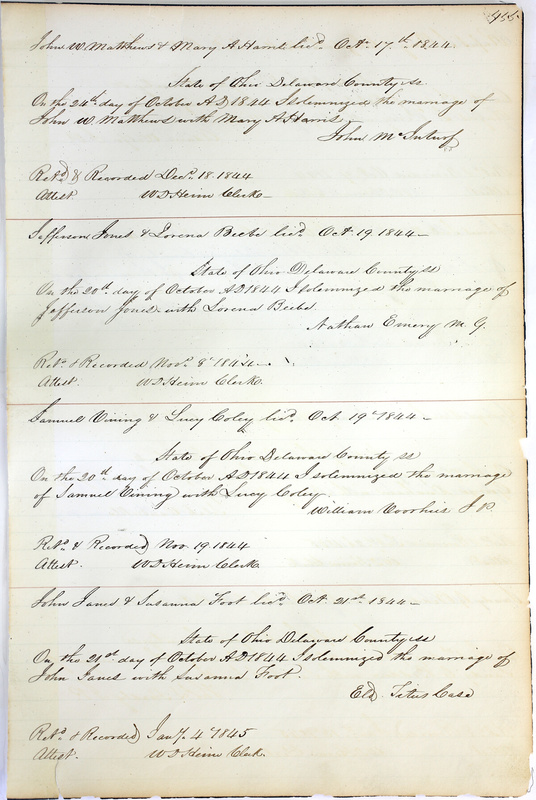 455
John W. Matthews & Mary A Harris licd. Octr. 17th 1844.
State of Ohio Delaware County ss
On the 24th day of October AD 1844 I solemnized the marriage of
John W. Matthews with Mary A Harris
John McInturf
Retd. & Recorded Decr. 18. 1844
Attest. W D Heim Clerk
Jefferson Jones & Lorena Beebe licd. Oct. 19 1844
State of Ohio Delaware County ss
On the 20th day of October AD 1844 I solemnized the marriage of
Jefferson Jones with Lorena Beebe.
Nathan Emery M. G.
Retd. & Recorded Novr. 8 1844
Attest. W D Heim Clerk
Samuel Vining & Lucy Coley licd. Oct. 19 1844
State of Ohio Delaware County ss
On the 20th day of October AD 1844 I solemnized the marriage
of Samuel Vining with Lucy Coley
William Voorhies J P.
Retd. & Recorded Nov. 19 1844
Attest. W D Heim Clerk
John Janes & Susanna Foot licd. Oct. 21st 1844
State of Ohio Delaware County ss
On the 21st day of October AD 1844 I solemnized the marriage of
John Janes with Susanna Foot.
Eld. Titus Case
Retd. & Recorded Jany. 4 1845
Attest. W D Heim Clerk.